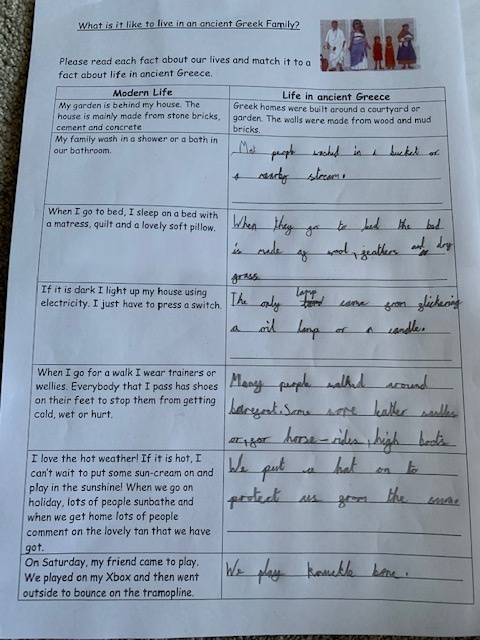 What is it like to live in an ancient Greek Family?
Please read each fact about our lives and match it to a
fact about life in ancient Greece.
Modern Life
Life in ancient Greece
My garden is behind my house. The
house is mainly made from stone bricks,
cement and concrete
Greek homes were built around a courtyard or
garden. The walls were made from wood and mud
bricks.
My family wash in a shower or a bath in
our bathroom.
people washed in a bucket or
a nearby stream.
When I go to bed, I sleep on a bed with
a matress, quilt and a lovely soft pillow.
When they go to bed the bed
is made of wool, feathers and dry
grass
If it is dark I light up my house using
electricity. I just have to press a switch.
The only lamp came from flickering
a oil lamp or a candle.
When I go for a walk I wear trainers or
wellies. Everybody that I pass has shoes
on their feet to stop them from getting
cold, wet or hurt.
Many people walked around
barefoot. Some wore leather
or, for horse-rides, high boots
I love the hot weather! If it is hot, I
can't wait to put some sun-cream on and
play in the sunshine! When we go on
holiday, lots of people sunbathe and
when we get home lots of people
comment on the lovely tan that we have
got.
We put a hat on to
protect us from the
On Saturday, my friend came to play.
We played on my Xbox and then went
outside to bounce on the tramopline.
We play knuckle bone.